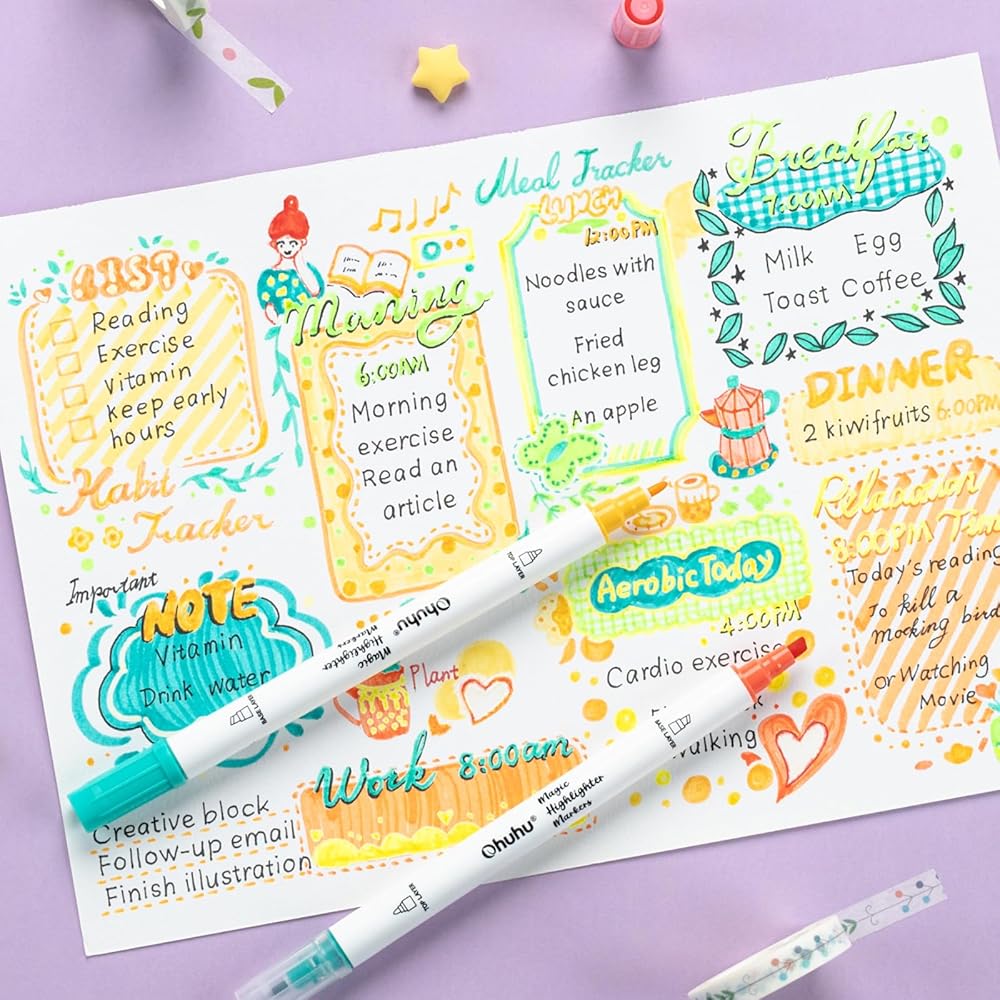 LIST
Reading
Exercise
Vitamin
keep early
hours
Habit
Tracker
Maning
6:00AM
Morning
exercise
Read an
article
Meal Tracker
LUNCH
12:00PM
Noodles with
sauce
Fried
chicken leg
An apple
Breakfast
7:00AM
Milk Egg
Toast Coffee
DINNER
2 kiwifruits 6:00PM
Important
NOTE
Vitamin
Drink water
Plant
Work 8:00am
Creative block
Follow-up email
Finish illustration
Aerobic Today
4:00PM
Cardio exercise
walking
Relaxation
8:00PM Time
Today's reading
To kill a
mocking bird
or Watching
Movie
TOP LAYER
Ohuhu®
Magic
Highlighter
Markers
BASE LAYER
BASE LAYER
Magic
Highlighter
Markers
Ohuhu®
TOP LAYER